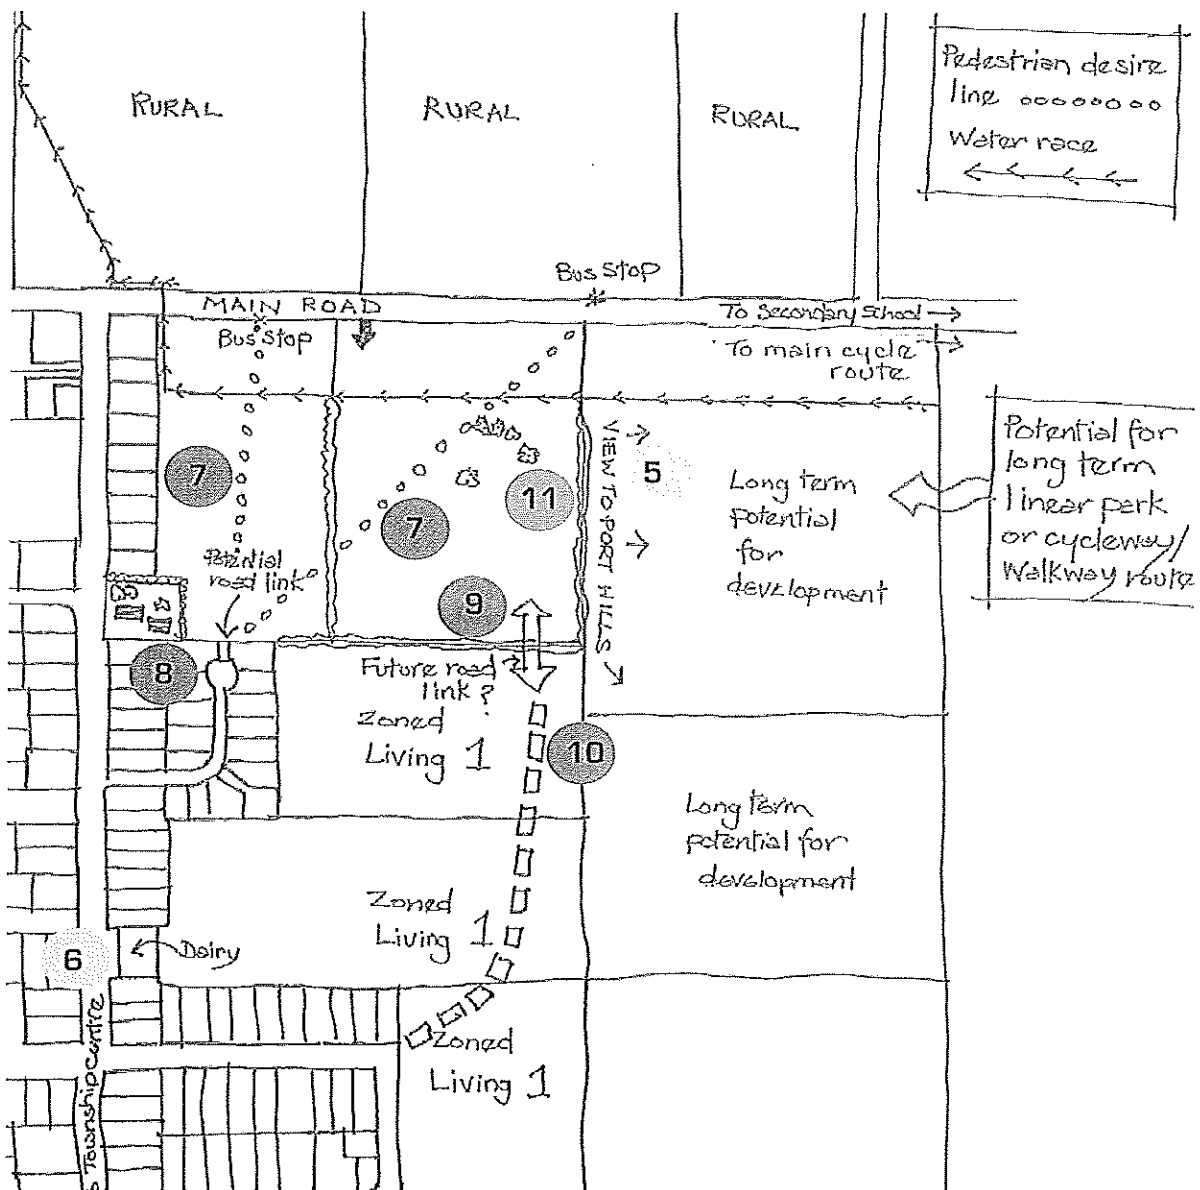 RURAL
RURAL
RURAL
Pedestrian desire
line
Water race
Bus Stop
MAIN ROAD
Bus Stop
To Secondary School
To main cycle
route
VIEW TO PORT HILLS
5
7
7
11
Long term
potential
for
development
Potential for
long term
linear park
or cycleway/
Walkway route
Potential
road link
9
8
Future road
link?
Zoned
Living 1
10
Long term
potential for
development
Zoned
Living 1
6
Dairy
Zoned
Living 1
Township Centre